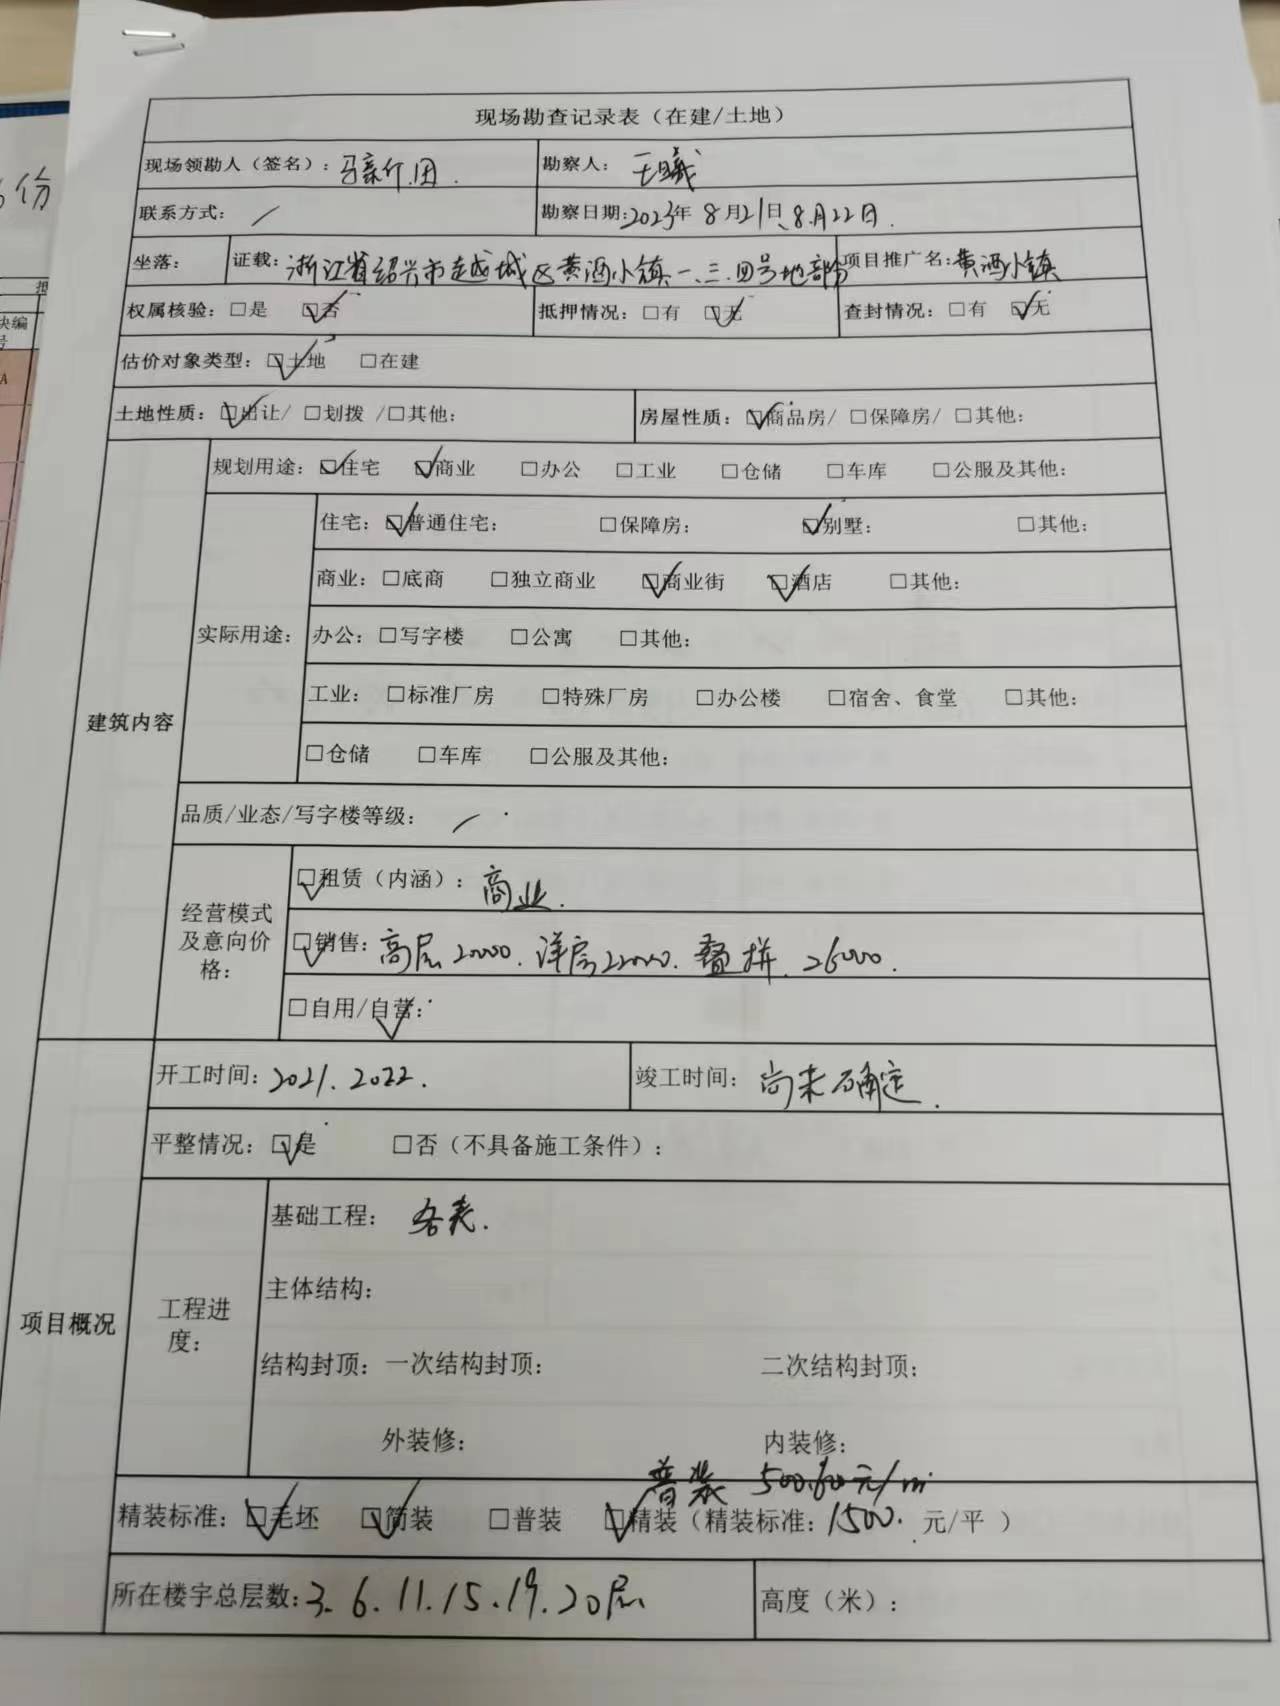 现场勘查记录表（在建/土地）
现场领勘人（签名）： 勘察人：王曦
联系方式：/ 勘察日期:2023年8月21日、8月22日.
坐落： 证载：浙江省绍兴市越城区黄酒小镇一、三、四号地部分 项目推广名:黄酒小镇
权属核验：□是 ☑否 抵押情况：□有 ☑无 查封情况：□有 ☑无
估价对象类型：☑土地 □在建
土地性质：☑出让/ □划拨 /□其他: 房屋性质：☑商品房/ □保障房/ □其他:
规划用途：☑住宅 ☑商业 □办公 □工业 □仓储 □车库 □公服及其他:
建筑内容
实际用途：
住宅：☑普通住宅: □保障房: ☑别墅: □其他:
商业：□底商 □独立商业 ☑商业街 ☑酒店 □其他:
办公：□写字楼 □公寓 □其他:
工业：□标准厂房 □特殊厂房 □办公楼 □宿舍、食堂 □其他:
□仓储 □车库 □公服及其他:
品质/业态/写字楼等级：/
经营模式
及意向价
格：
☑租赁（内涵）：商业.
☑销售：高层20000.洋房22000.叠拼.26000.
☑自用/自营:
项目概况
开工时间：2021.2022. 竣工时间：尚未确定.
平整情况：☑是 □否（不具备施工条件）：
工程进
度：
基础工程：
主体结构：
结构封顶：一次结构封顶: 二次结构封顶:
外装修： 内装修：
普装 元/㎡
精装标准：☑毛坯 ☑简装 □普装 ☑精装（精装标准：1500.元/平 ）
所在楼宇总层数:3.6.11.15.19.20层 高度（米）：
份
块编
号
A